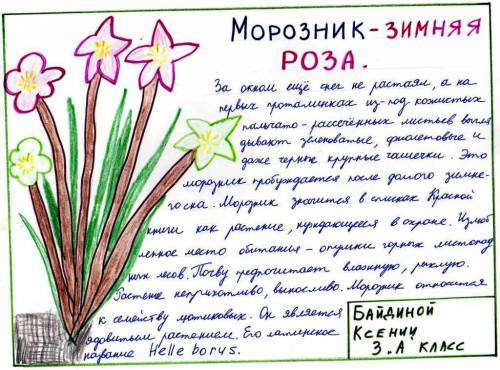 МОРОЗНИК - ЗИМНЯЯ
РОЗА.
За окном ещё снег не растаял, а на
первых проталинках из-под кожистых
пальчато-рассечённых листьев выгля
дывают зеленоватые, фиолетовые и
даже чёрные крупные чашечки. Это
морозник пробуждается после долгого зимне-
го сна. Морозник значится в списках Красной
книги как растение, нуждающееся в охране. Излюб
ленное место обитания - опушки горных листопад
ных лесов. Почву предпочитает влажную, рыхлую.
Растение неприхотливо, выносливо. Морозник относится
к семейству лютиковых. Он является
ядовитым растением. Его латинское
название Helleborus.
БАЙДИНОЙ
КСЕНИИ
3.А КЛАСС